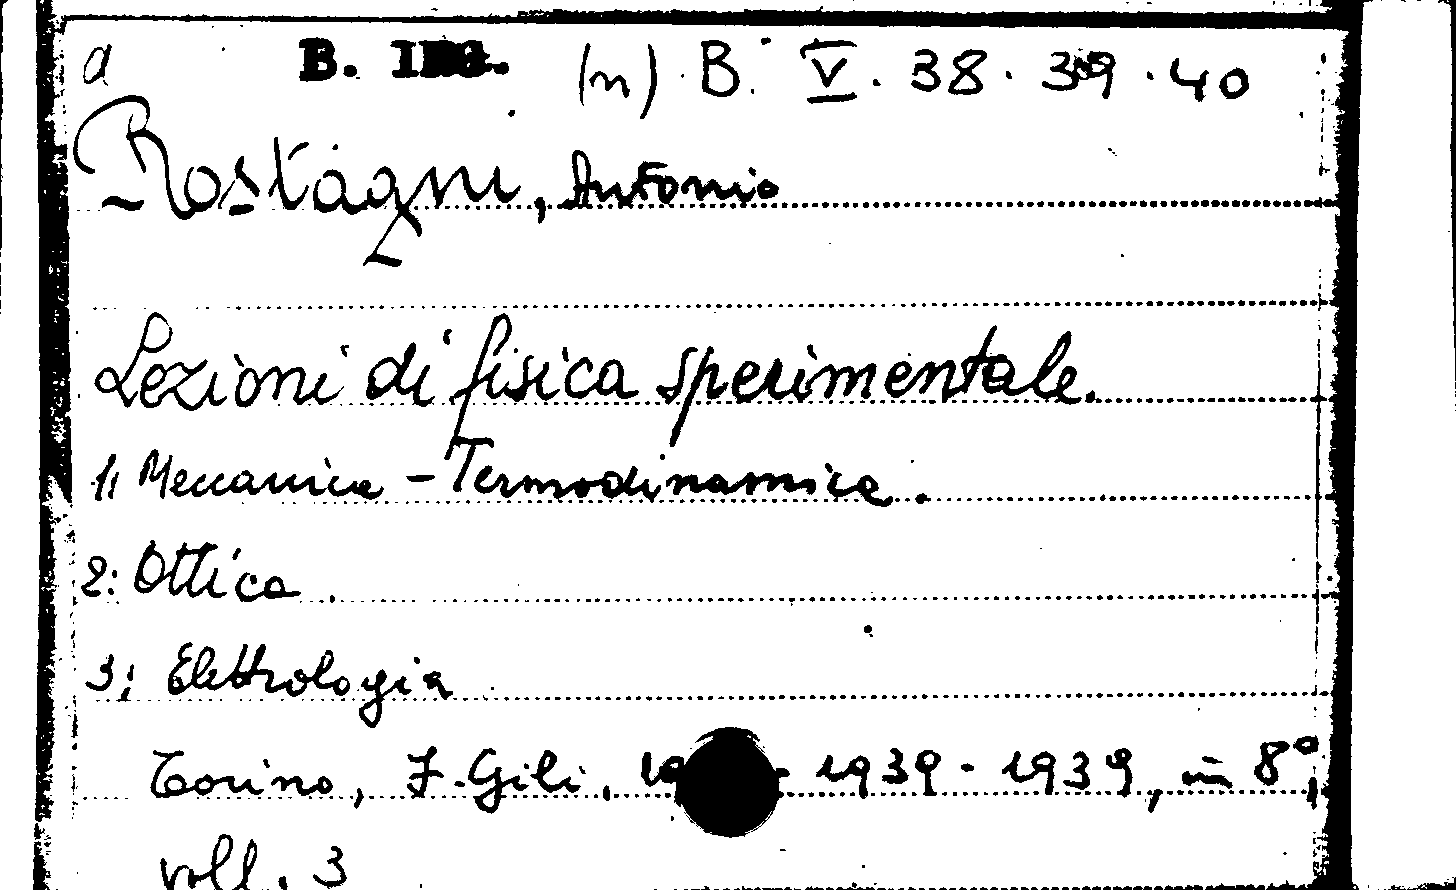 a B. (n) B. V. 38. 39. 40
Rostagni, Antonio
Lezioni di fisica sperimentale.
1; Meccanica - Termodinamica.
2: Ottica.
3; Elettrologia
Torino, F. Gili, 1939 - 1939, in 8°,
voll. 3